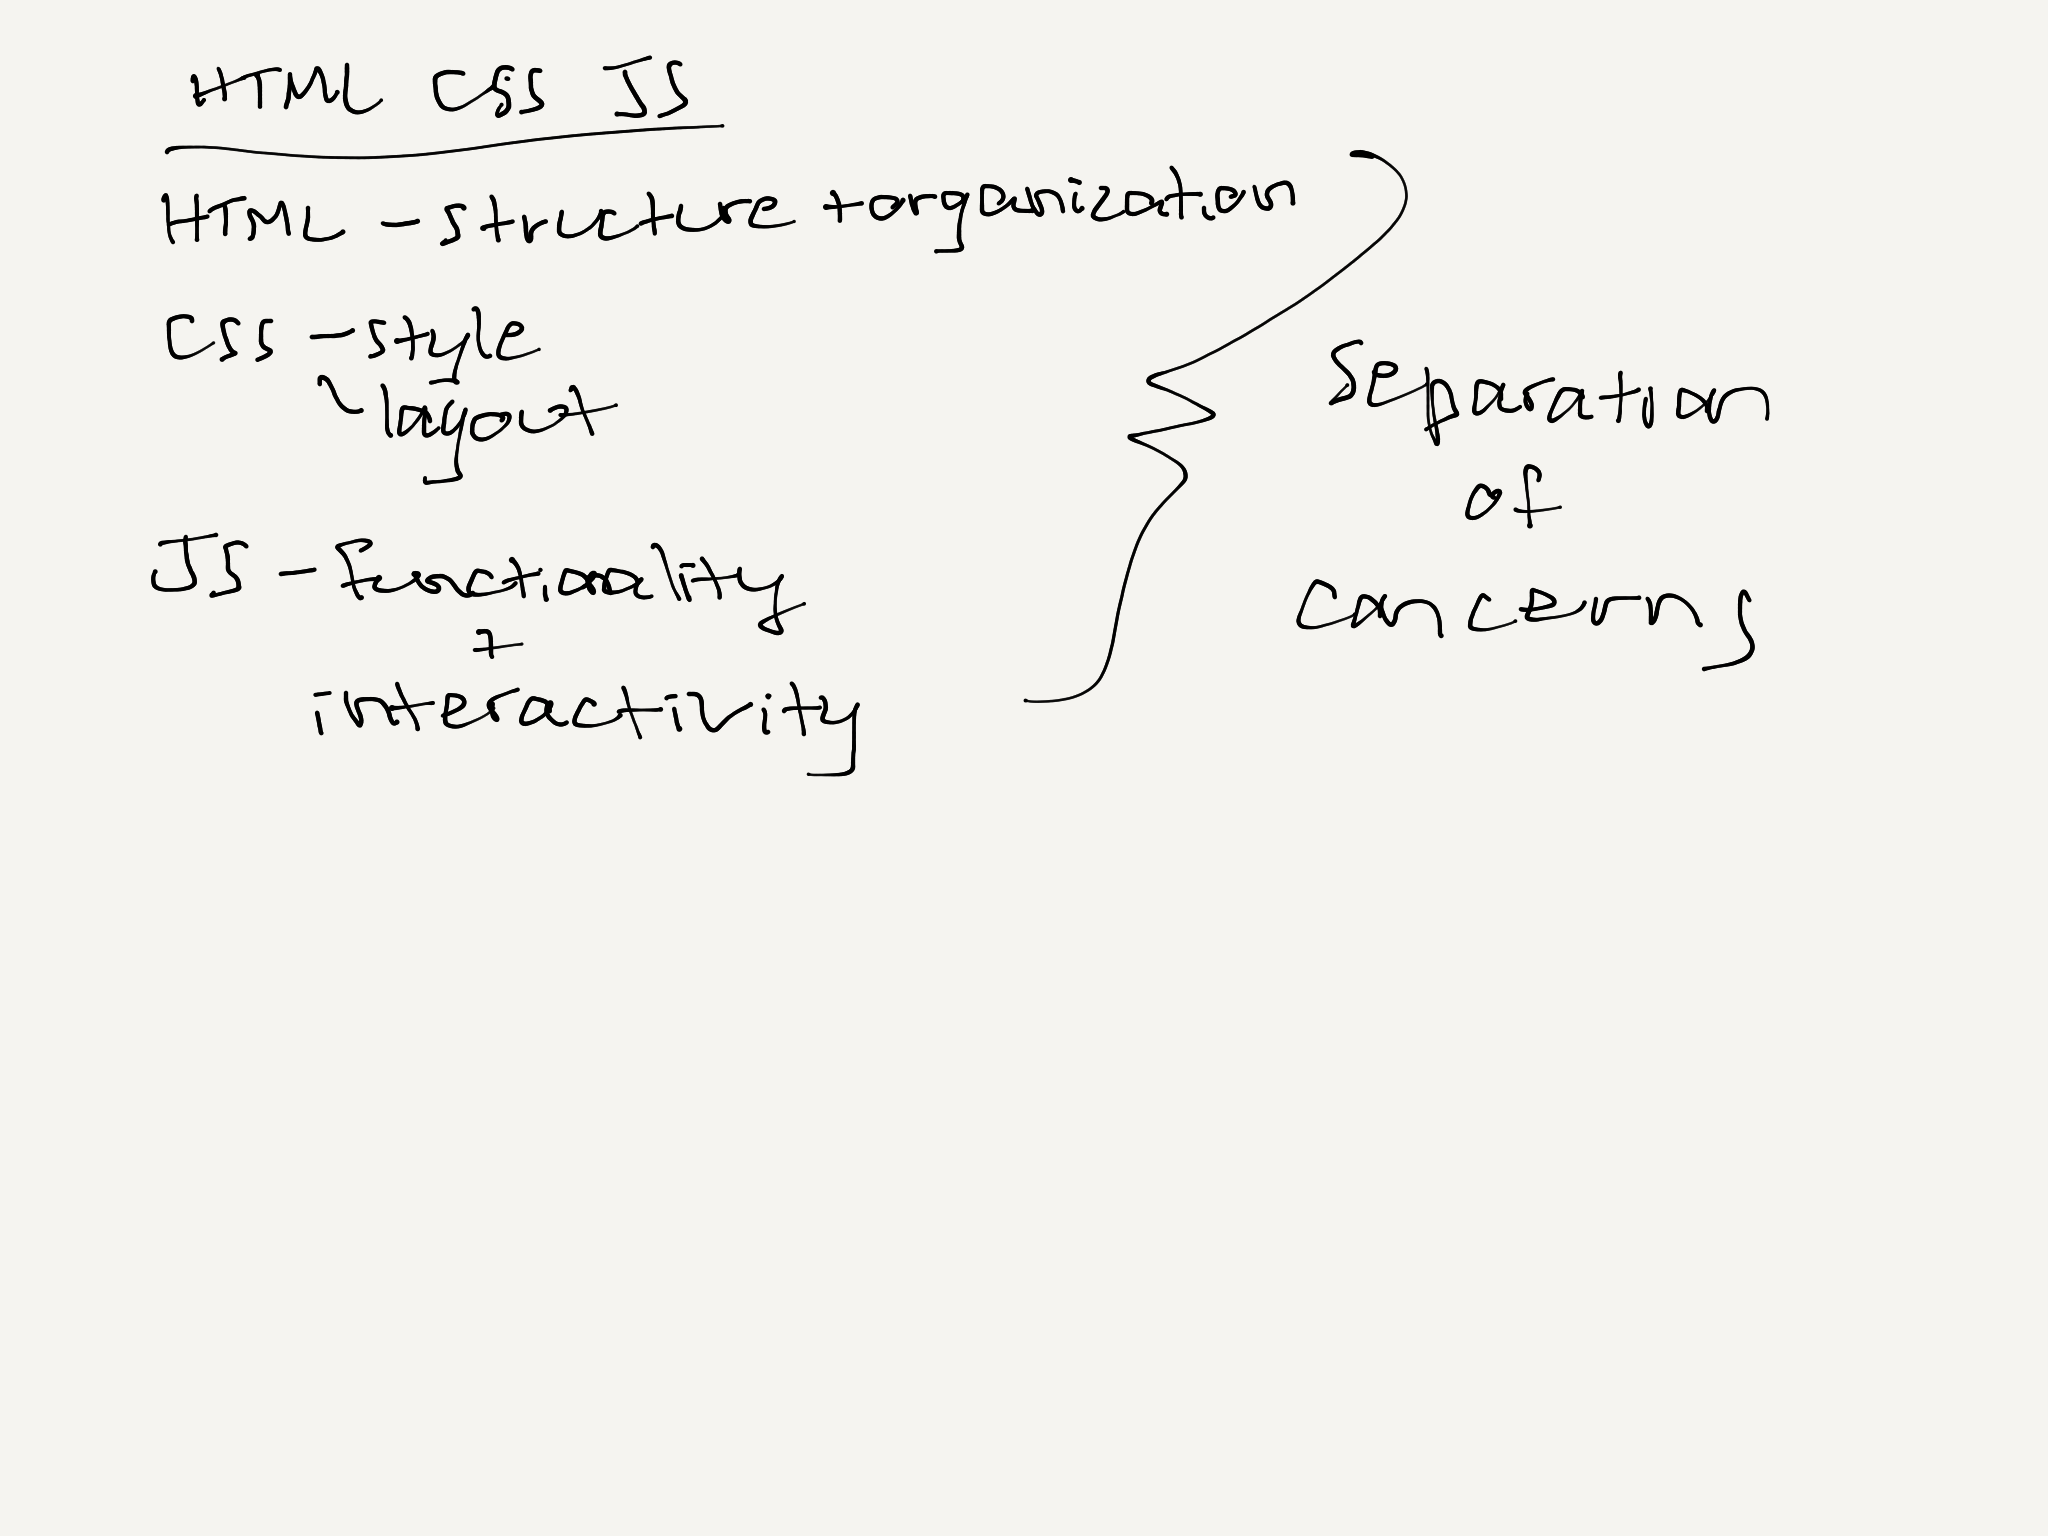 HTML CSS JS
HTML - structure + organization
CSS - style
- layout
JS - Functionality
+
interactivity
Separation
of
concerns